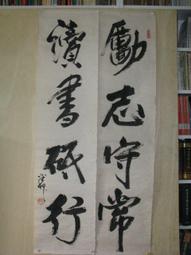 勵志守常
讀書砥行